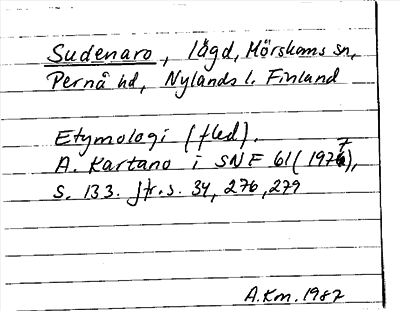 Sudenaro, lägd, Mörskoms sn,
Pernå hd, Nylands l. Finland
Etymologi (fled).
A. Kartano i SNF 61 (1977),
s. 133. Jfr. s. 34, 276, 279
A.Km. 1987